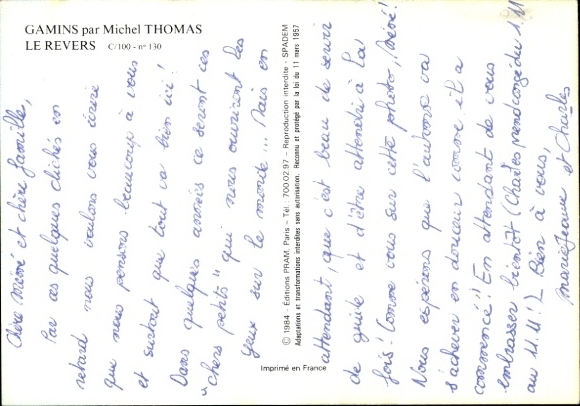 GAMINS par Michel THOMAS
LE REVERS C/100 - n° 130
Chère Mémé et chère famille,
Par ces quelques clichés en
retard nous voulons vous écrire
que nous pensons beaucoup à vous
et surtout que tout va bien ici!
Dans quelques années ce seront ces
"chers petits" qui nous ouvriront les
yeux sur le monde... Mais en
© 1984 - Éditions PRAM, Paris - Tél. : 700.02.97 - Reproduction interdite - SPADEM
Adaptations et transformations interdites sans autorisation. Reconnu et protégé par la loi du 11 mars 1957
attendant, que c'est beau de servir
de guide et d'être attendri à la
fois! Comme vous sur cette photo, Mémé!
Nous espérons que l'automne va
s'achever en douceur comme il a
commencé! En attendant de vous
embrasser bientôt (Charles prend congé du 1.11
au 11.11!) Bien à vous,
Marie-Jeanne et Charles
Imprimé en France